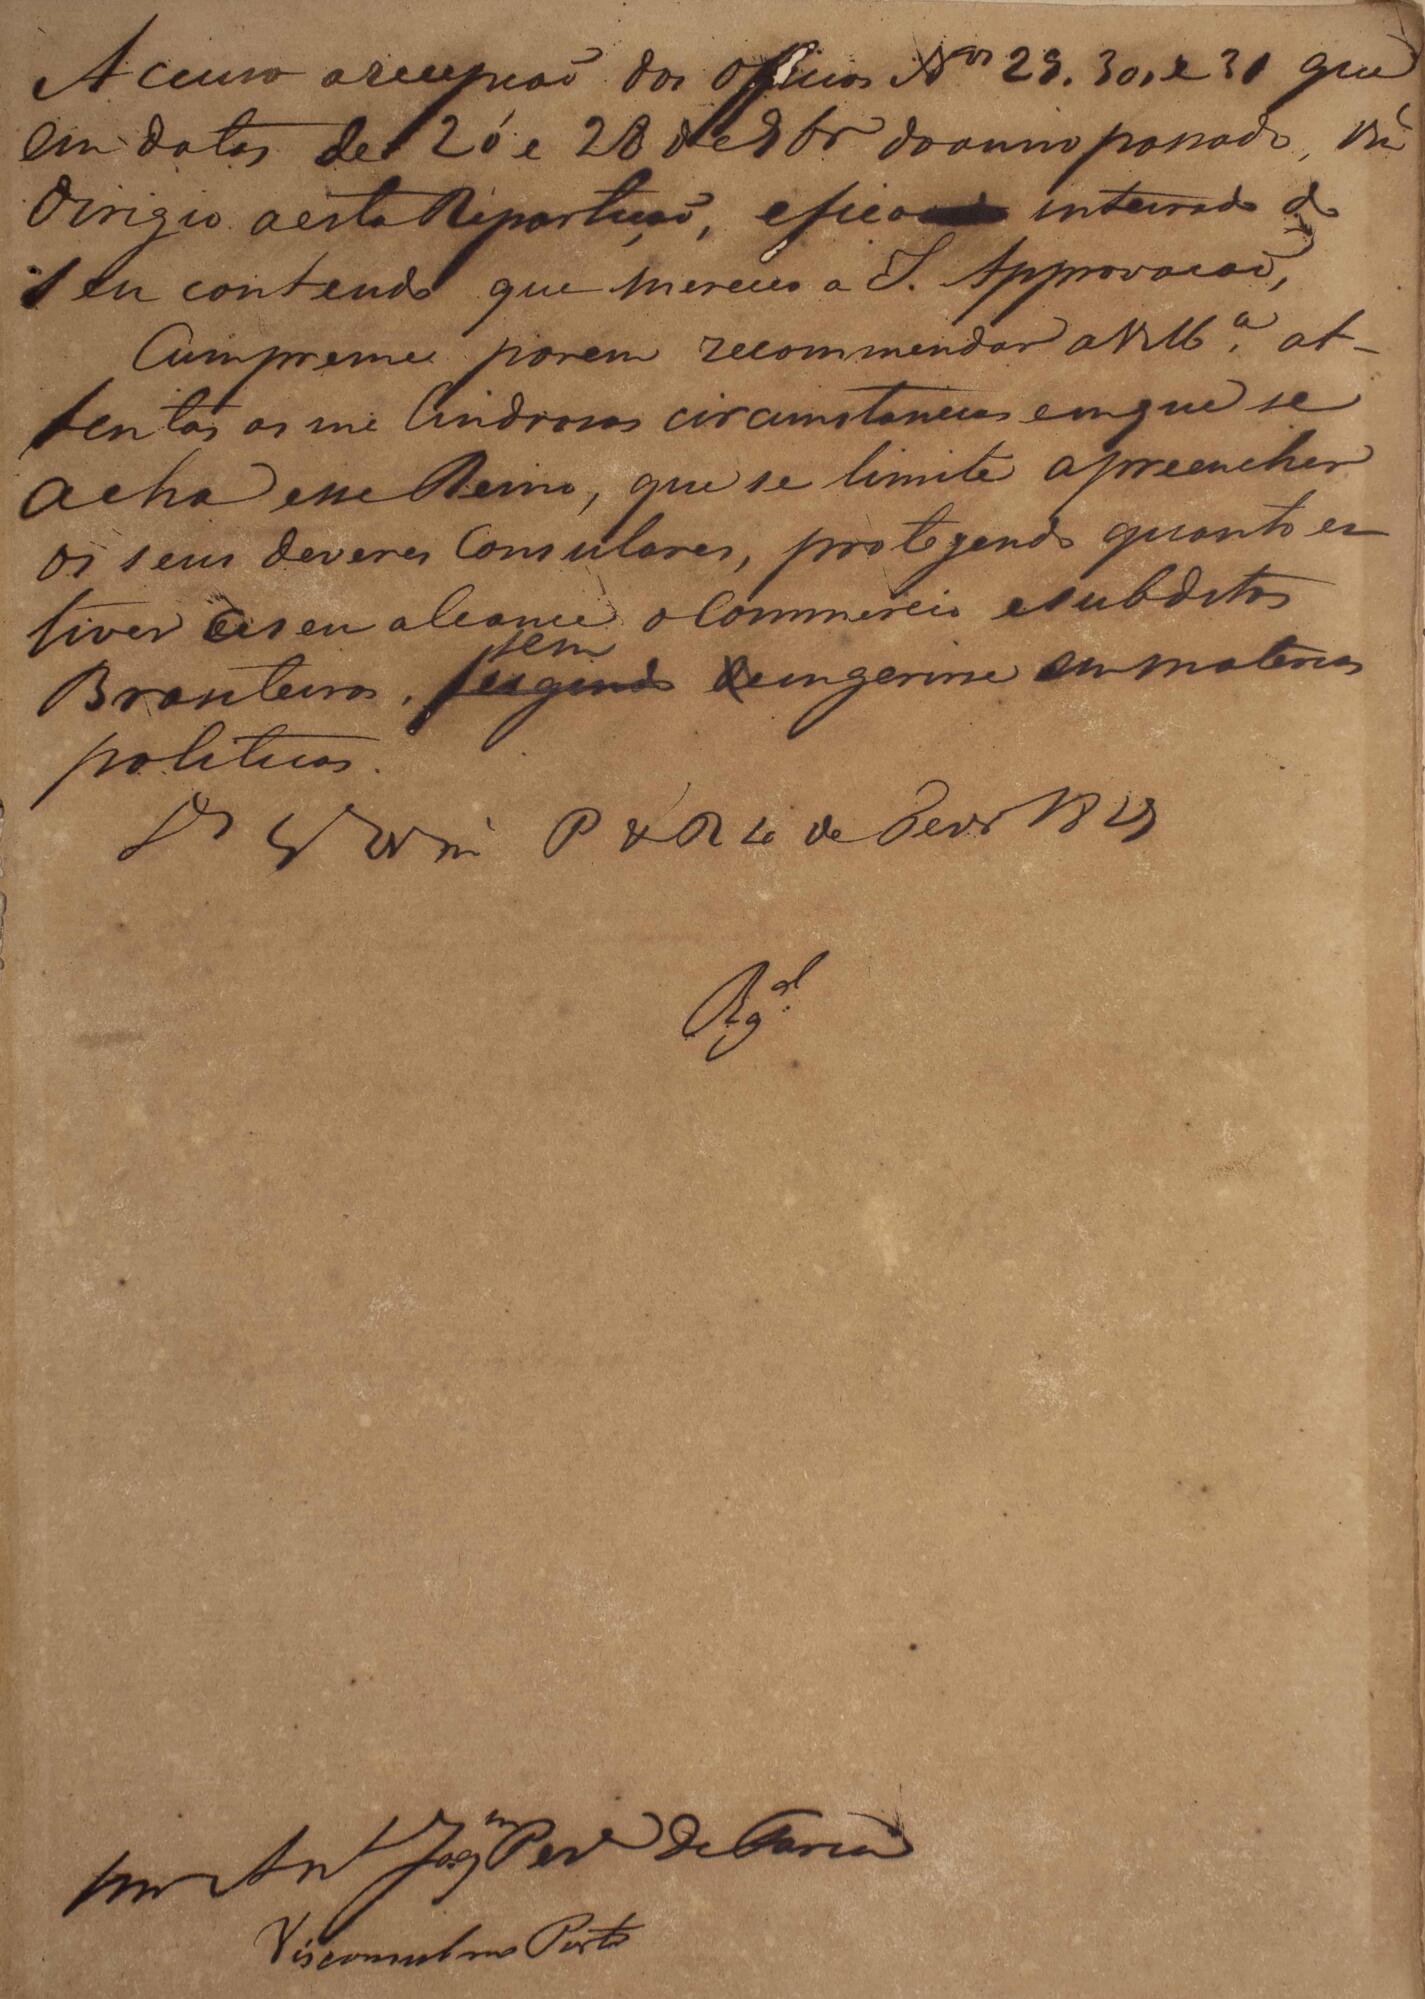 Accuso a recepção dos Officios Nos 29. 30, e 31 que
em datas de 26 e 28 de 8br do anno passado, Vm
dirigio a esta Repartição, e fico inteirado do
seu contendo que mereceo a I. Approvacão,
Cumpreme porem recommendar a VMa. at-
tentas as me lindrosas circunstancias em que se
acha esse Reino, que se limite a preencher
os seus deveres Consulares, protegendo quanto es
tiver em seu alcance o Commercio e subditos
Brasileiros, sem ingerirse em materias
politicas.
Ds Ge Vm P 4 de Fevr 1829
por Ant Joaqm Perª de Faria
Visconsul no Porto